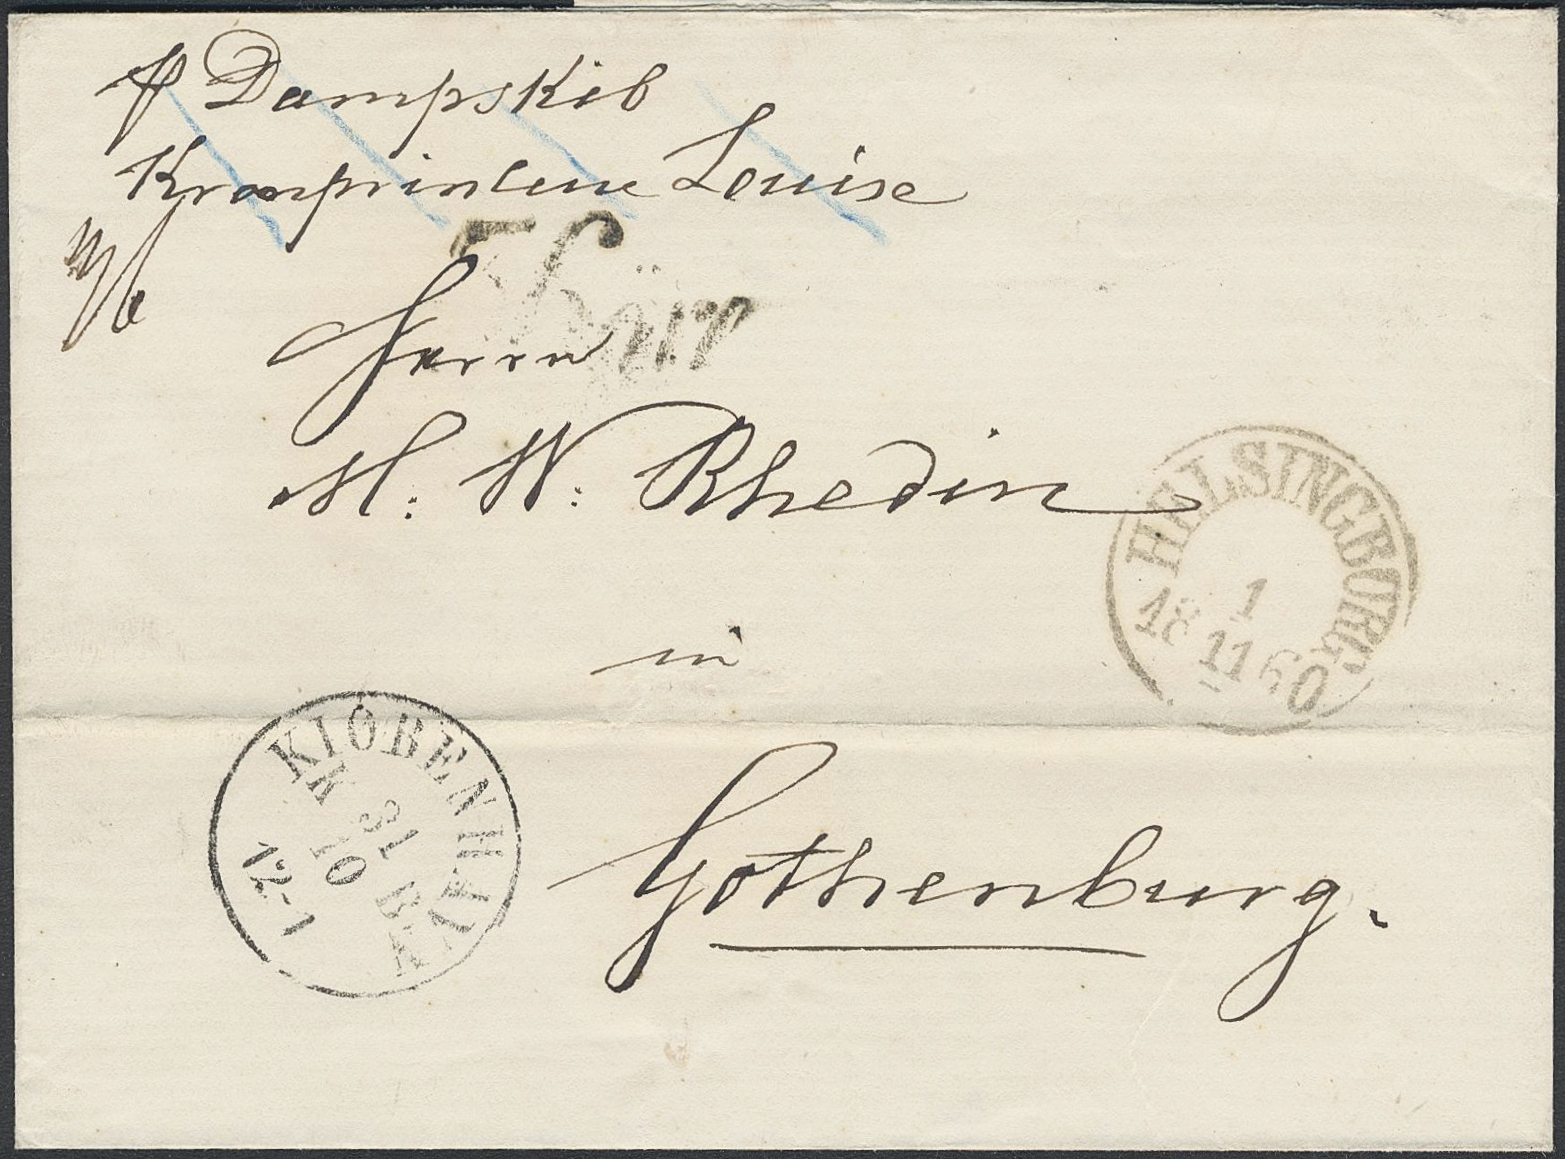 pr Dampskib
Kronprintsene Louise
Herrn
M: W: Rhedin
in
Gothenburg.
HELSINGBORG
1
18 11 60
KIÖBENHAVN
K 31 E
10
12-1